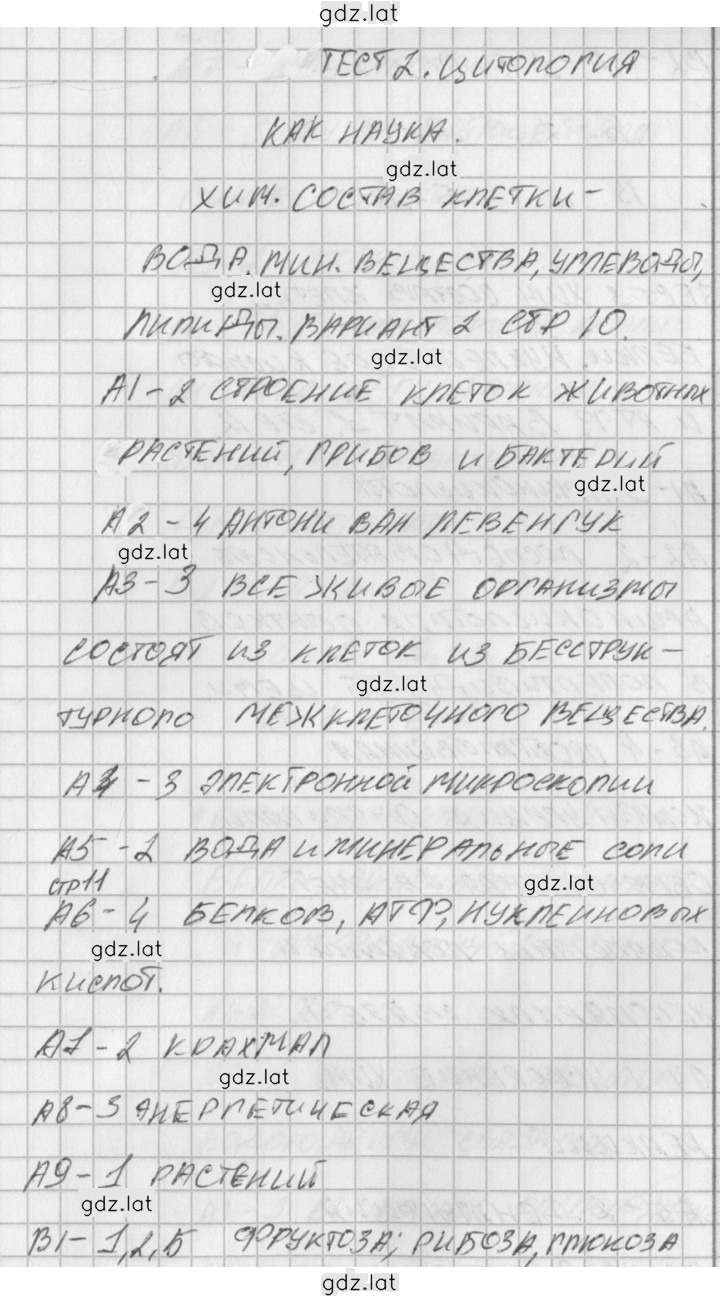 gdz.lat
ТЕСТ 2. ЦИТОЛОГИЯ
КАК НАУКА.
gdz.lat
ХИМ. СОСТАВ КЛЕТКИ-
ВОДА, МИН. ВЕЩЕСТВА, УГЛЕВОДЫ,
gdz.lat
ЛИПИДЫ. ВАРИАНТ 2 СТР 10.
gdz.lat
А1-2 СТРОЕНИЕ КЛЕТОК ЖИВОТНЫХ
РАСТЕНИЙ, ГРИБОВ И БАКТЕРИЙ
gdz.lat
А2-4 АНТОНИ ВАН ЛЕВЕНГУК
gdz.lat
А3-3 ВСЕ ЖИВЫЕ ОРГАНИЗМЫ
СОСТОЯТ ИЗ КЛЕТОК ИЗ БЕССТРУК-
gdz.lat
ТУРНОГО МЕЖКЛЕТОЧНОГО ВЕЩЕСТВА.
А4-3 ЭЛЕКТРОННОЙ МИКРОСКОПИИ
А5-2 ВОДА И МИНЕРАЛЬНЫЕ СОЛИ
СТР11
gdz.lat
А6-4 БЕЛКОВ, АТФ, НУКЛЕИНОВЫХ
gdz.lat
КИСЛОТ.
А7-2 КРАХМАЛ
gdz.lat
А8-3 ЭНЕРГЕТИЧЕСКАЯ
А9-1 РАСТЕНИЙ
gdz.lat
В1-1,2,5 ФРУКТОЗА; РИБОЗА, ГЛЮКОЗА
gdz.lat